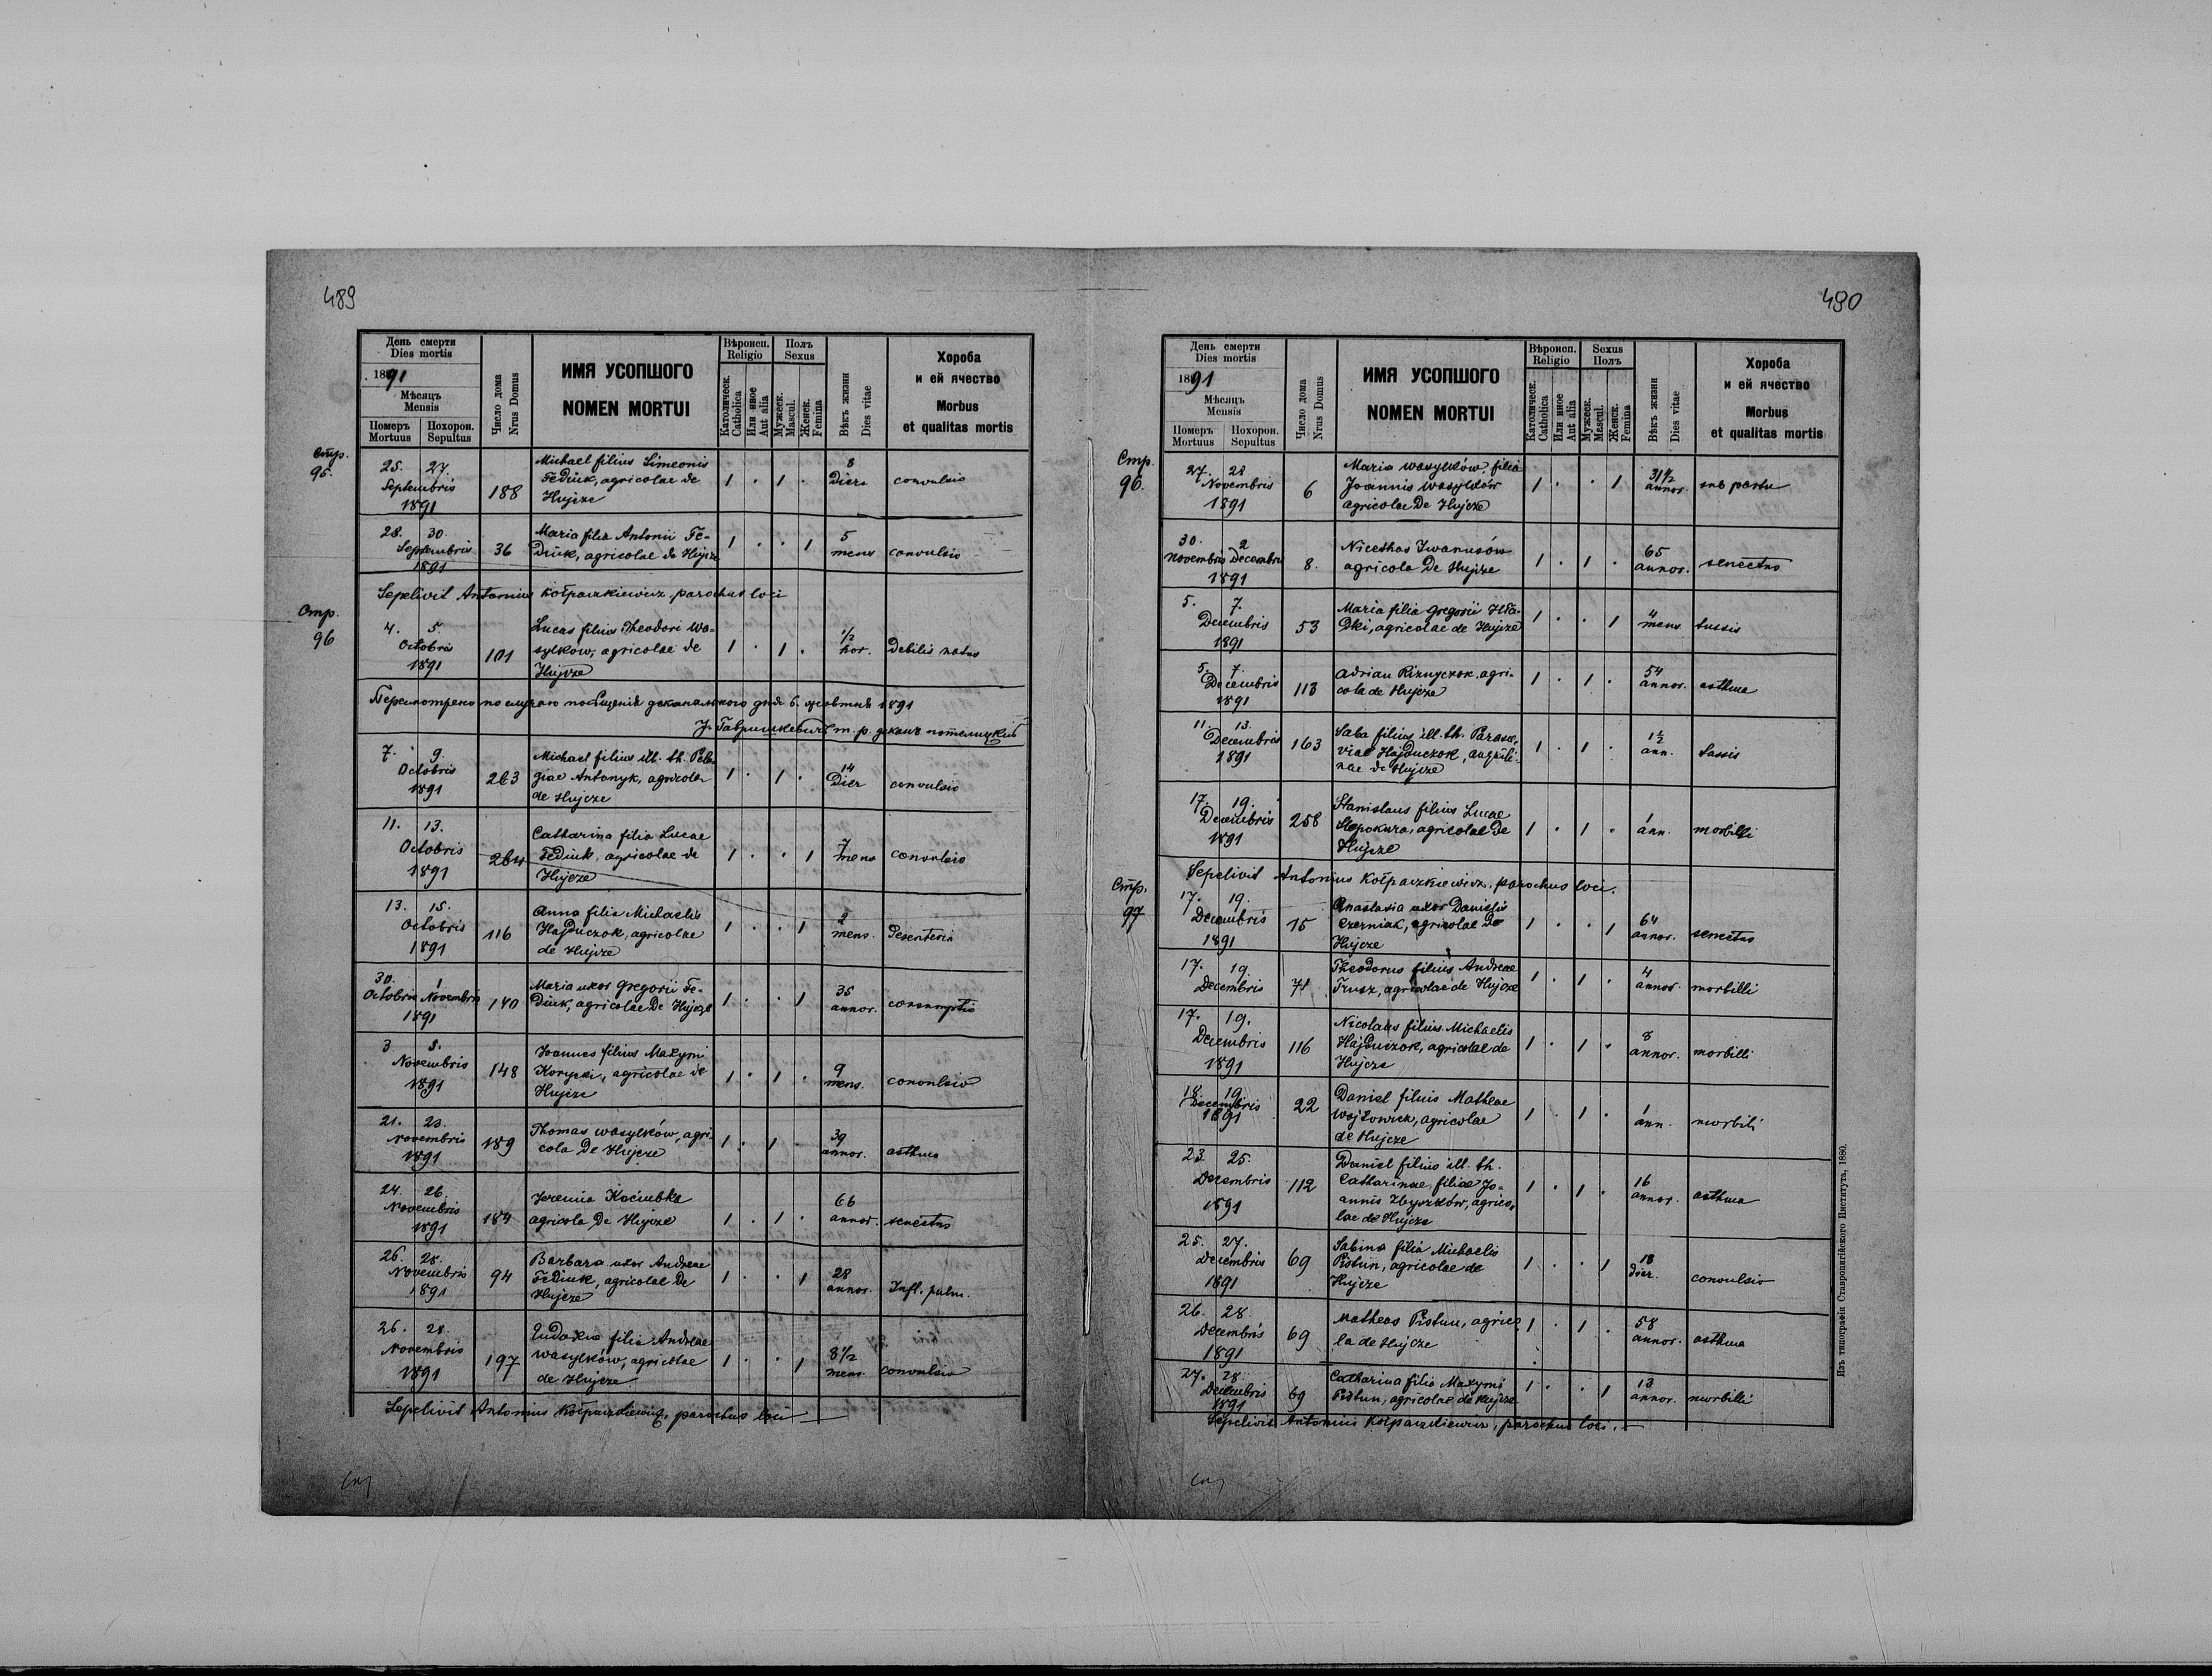 489
День смерти
Dies mortis
1891
Мѣсяцъ
Mensis
Померъ Похорон.
Mortuus Sepultus
Число дома
Nrus Domus
ИМЯ УСОПШОГО
NOMEN MORTUI
Вѣроисп.
Religio
Католическ.
Catholica
Или иное
Aut alia
Полъ
Sexus
Мужеск.
Mascul.
Женск.
Femina
Вѣкъ жизни
Dies vitae
Хороба
и ей ячество
Morbus
et qualitas mortis
Стр.
95.
25. 27.
Septembris
1891
188
Michael filius Simeonis
Fediuk, agricolae de
Hujcze
1 . 1 .
8
Dier.
convulsio
28. 30.
Septembris
1891
36
Maria filia Antonii Fe-
diuk, agricolae de Hujcze
1 . . 1
5
mens
convulsio
Sepelivit Antonius Kołpaczkiewicz parochus loci
Стр.
96
4. 5.
Octobris
1891
101
Lucas filius Theodori Wa-
sylków, agricolae de
Hujcze
1 . 1 .
1/2
hor.
Debilis natus
Пересмотрено по случаю посѣщенія деканального дня 6. жовтня 1891
7. 9.
Octobris
1891
263
Michael filius ill. th. Pela-
giae Antonyk, agricolae
de Hujcze
1 . 1 .
14
Dier
convulsio
11. 13.
Octobris
1891
264
Catharina filia Lucae
Fediuk, agricolae de
Hujcze
1 . . 1
7
mens
convulsio
13. 15.
Octobris
1891
116
Anna filia Michaelis
Hajduczok, agricolae
de Hujcze
1 . . 1
2
mens.
30. 1
Octobris Novembris
1891
140
Maria uxor Gregorii Fe-
diuk, agricolae De Hujcze
1 . . 1
35
annor.
consumptio
3 5.
Novembris
1891
148
Joannes filius Maxymi
agricolae de
Hujcze
1 . 1 .
9
mens.
convulsio
21. 23.
Novembris
1891
189
Thomas Wasylków, agri-
cola De Hujcze
1 . 1 .
39
annor.
asthma
24. 26.
Novembris
1891
184
Jeremia Kociubka
agricola De Hujcze
1 . 1 .
66
annor.
senectus
26. 28.
Novembris
1891
94
Barbara uxor Andreae
Fediuk, agricolae De
Hujcze
1 . . 1
28
annor.
Infl. pulm.
26. 28.
Novembris
1891
197
Eudoxia filia Andreae
Wasylków, agricolae
de Hujcze
1 . . 1
8 1/2
mens.
convulsio
Sepelivit Antonius Kołpaczkiewicz, parochus loci
490
День смерти
Dies mortis
1891
Мѣсяцъ
Mensis
Померъ Похорон.
Mortuus Sepultus
Число дома
Nrus Domus
ИМЯ УСОПШОГО
NOMEN MORTUI
Вѣроисп.
Religio
Католическ.
Catholica
Или иное
Aut alia
Sexus
Полъ
Мужеск.
Mascul.
Женск.
Femina
Вѣкъ жизни
Dies vitae
Хороба
и ей ячество
Morbus
et qualitas mortis
Стр.
96.
27. 28
Novembris
1891
6
Maria Wasylków, filia
Joannis Wasylków
agricolae De Hujcze
1 . . 1
31 1/2
annor.
sub partu
30. 2
Novembris Decembris
1891
8.
Nicethas Iwanusów
agricola De Hujcze
1 . 1 .
65
annor.
senectus
5. 7.
Decembris
1891
53
Maria filia Gregorii Hła-
dki, agricolae de Hujcze
1 . . 1
4
mens
tussis
5. 7.
Decembris
1891
113
Adrian Riznyczok, agri-
cola de Hujcze
1 . 1 .
54
annor.
asthma
11. 13.
Decembris
1891
163
Saba filius ill. th. Parasce-
viae Hajduczok,
de Hujcze
1 . 1 .
1 1/2
ann.
tussis
17. 19.
Decembris
1891
258
Stanislaus filius Lucae
agricolae De
Hujcze
1 . 1 .
1
ann.
morbilli
Sepelivit Antonius Kołpaczkiewicz, parochus loci.
Стр.
97
17. 19.
Decembris
1891
15
Anastasia uxor Danielis
Czerniak, agricolae De
Hujcze
1 . . 1
64
annor.
senectus
17. 19.
Decembris
71
Theodorus filius Andreae
Trusz, agricolae de Hujcze
1 . 1 .
4
annor.
morbilli
17. 19.
Decembris
1891
116
Nicolaus filius Michaelis
Hajduczok, agricolae de
Hujcze
1 . 1 .
8
annor.
morbilli
18. 19.
Decembris
1891
22
Daniel filius Matheae
Wojtowicz, agricolae
de Hujcze
1 . 1 .
1
ann.
morbili
23. 25.
Decembris
1891
112
Daniel filius ill. th.
Catharinae, filiae Jo-
annis Zbyszków, agrico-
lae de Hujcze
1 . 1 .
16
annor.
asthma
25. 27.
Decembris
1891
69
Sabina filia Michaelis
Pistun, agricolae de
Hujcze
1 . . 1
18
dier.
convulsio
26. 28
Decembris
1891
69
Matheas Pistun, agrico-
la de Hujcze
1 . 1 .
58
annor.
asthma
27. 28
Decembris
1891
69
Catharina filia Maxymi
Pistun, agricolae de Hujcze
1 . . 1
13
annor.
morbilli
Sepelivit Antonius Kołpaczkiewicz, parochus loci.
Изъ типографіи Ставропигійского Института, 1880.